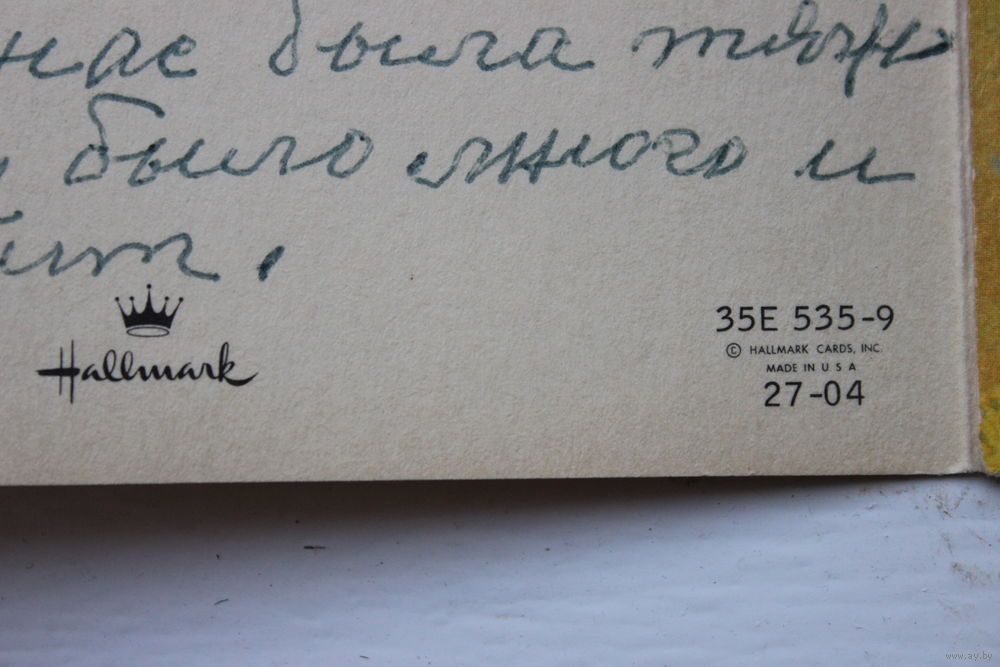 нас была тяж
было много и
Hallmark
35E 535-9
© HALLMARK CARDS, INC.
MADE IN U S A
27-04
www.ay.by